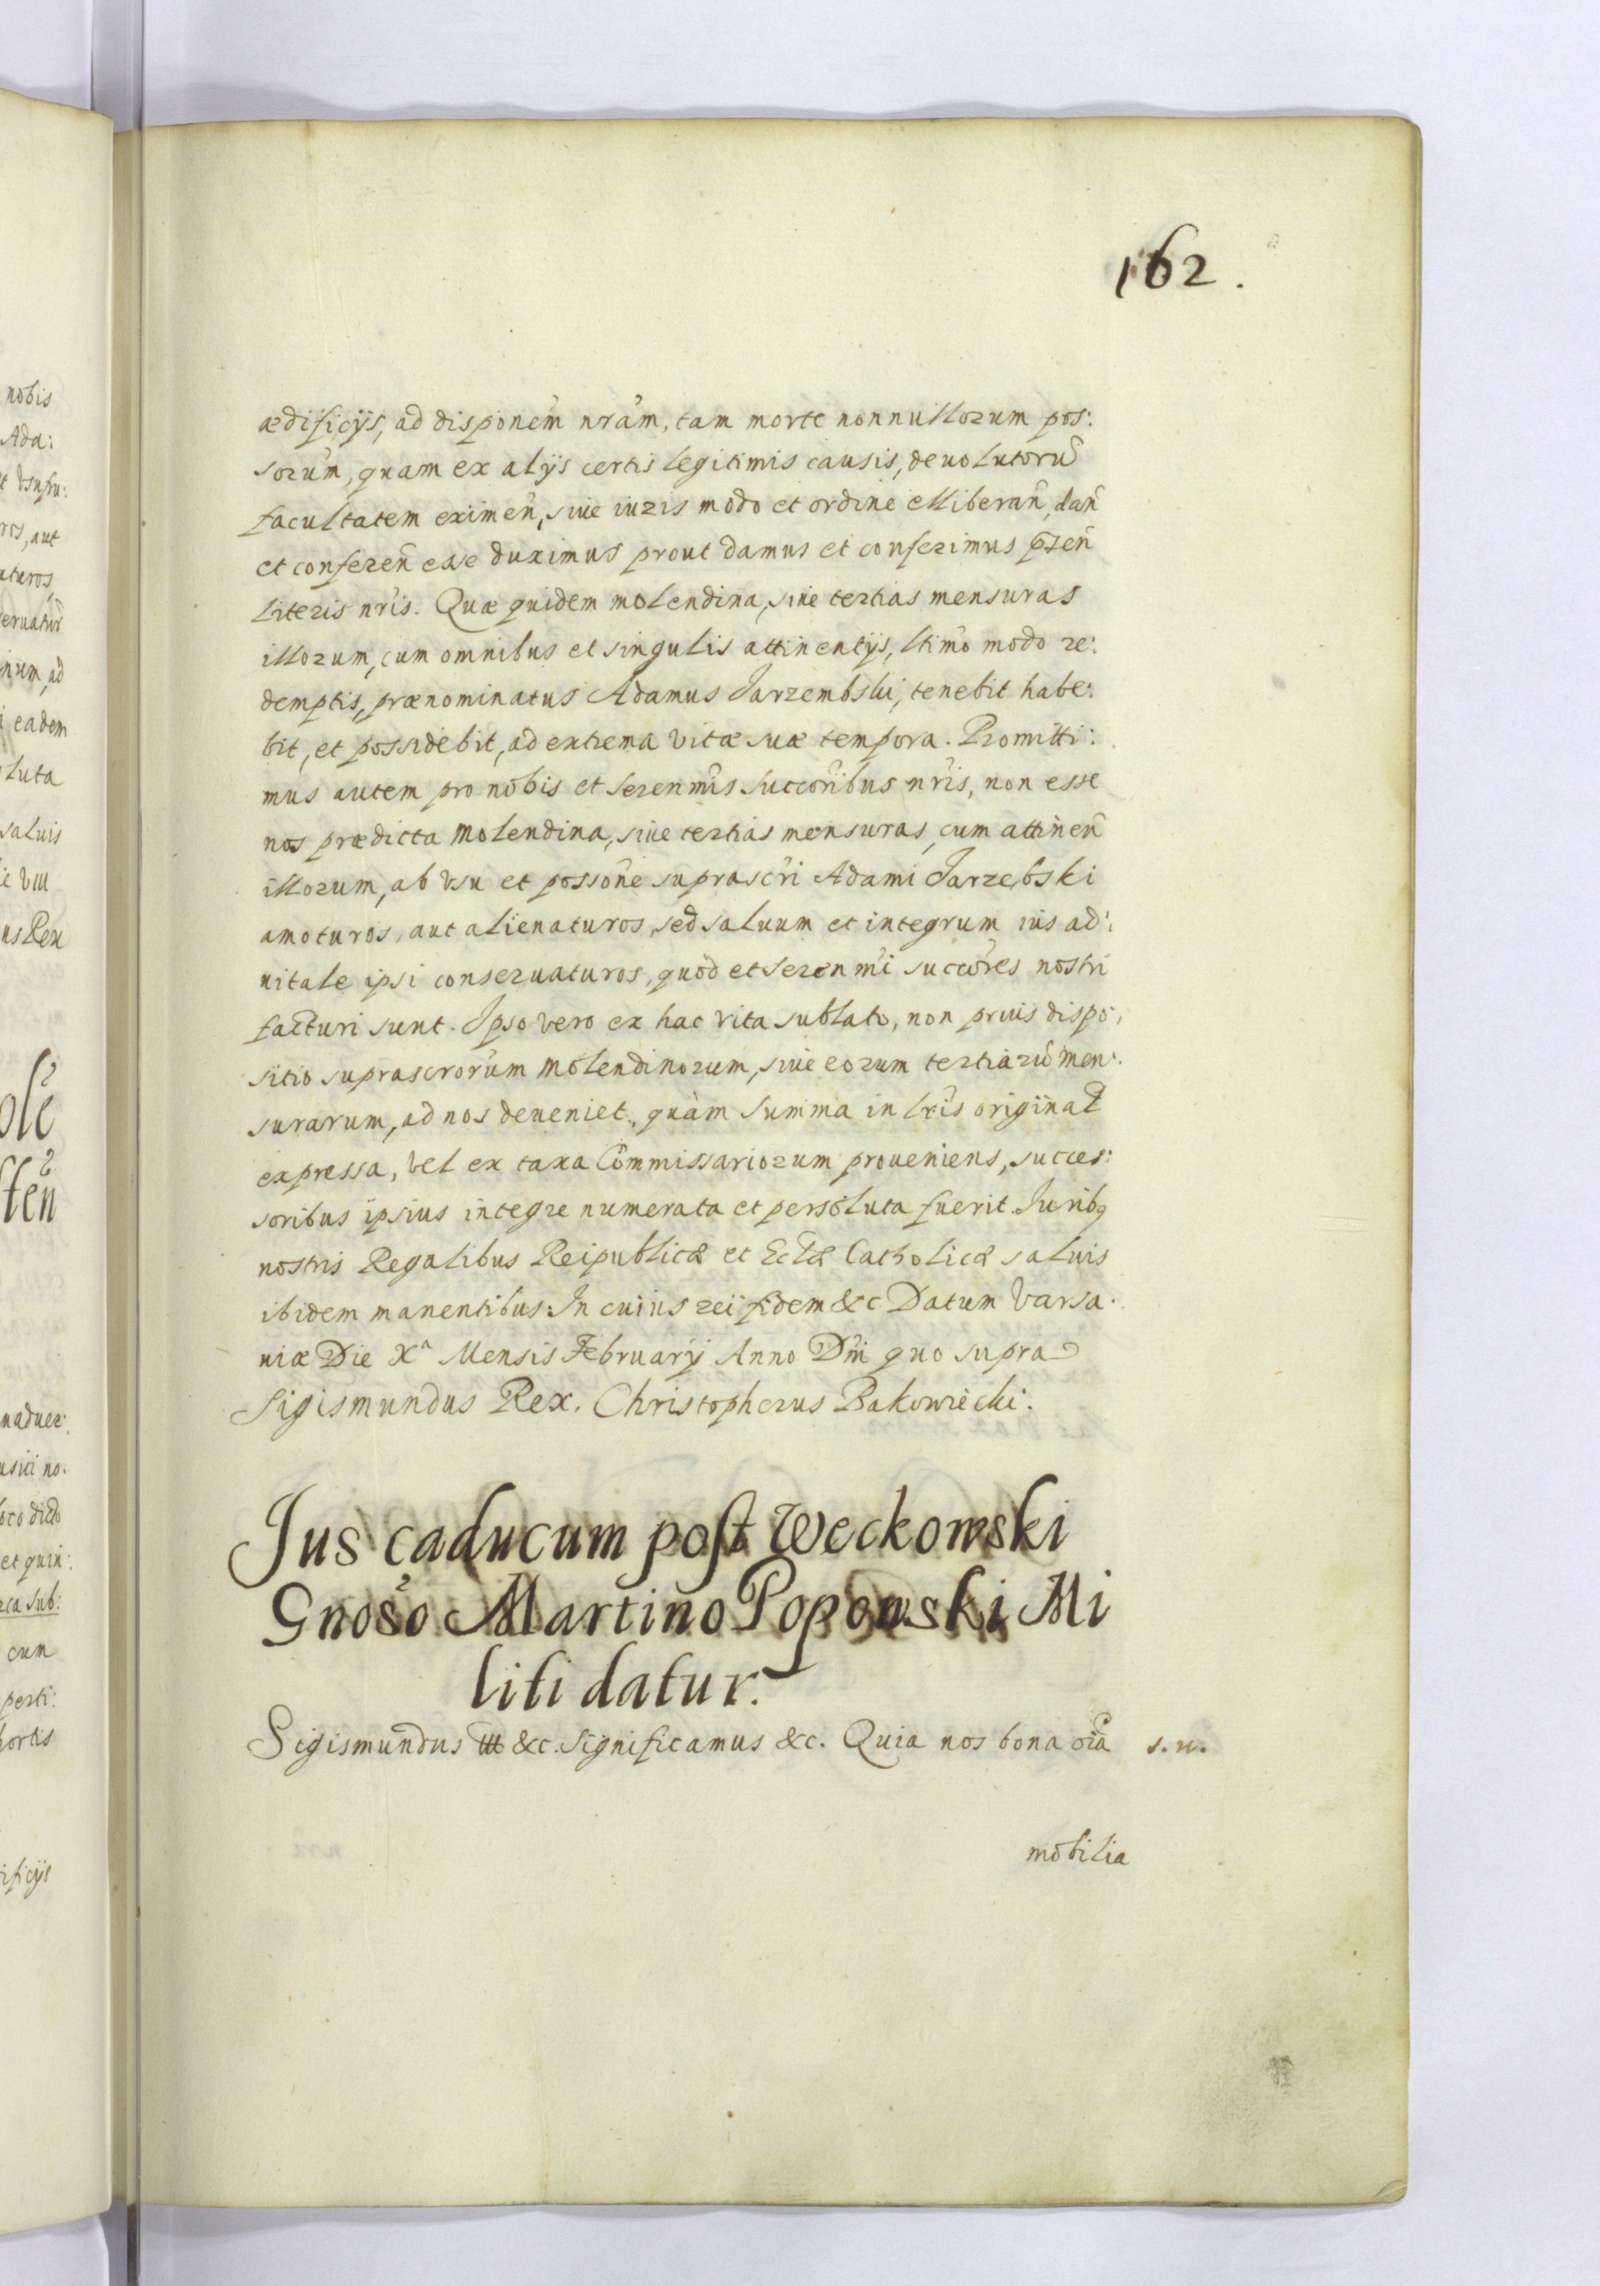 162.
nobis
Ada:
ros, aut
aturos,
eruatur
inum, ad
eadem
luta
saluis
us Rex
cum
perti:
hortis
ificijs
ædificijs, ad disponem̃ nrãm, tam morte nonnullorum pos:
sorum̃, quam ex alijs certis legitimis causis, deuolutorũ
facultatem eximen̄, siue iuris modo et ordine elliberan̄, dan̄
et conferen̄ esse duximus prout damus et conferimus p̄sen̄
literis nrĩs. Quæ quidem molendina, siue tertias mensuras
illorum, cum omnibus et singulis attinentijs, ltimõ modo re:
demptis, prænominatus Adamus Jarzembski, tenebit habe:
bit, et possidebit, ad extrema vitæ suæ tempora. Promitti:
mus autem pro nobis et serenmĩs succorĩbus nrĩs, non esse
nos prædicta molendina, siue tertias mensuras, cum attinen̄
illorum, ab vsu et possonẽ suprascrĩ Adami Jarzebski
amoturos, aut alienaturos, sed saluum et integrum ius ad:
uitale ipsi conseruaturos, quod et serenmĩ succorẽs nostri
facturi sunt. Ipso vero ex hac vita sublato, non prius dispo:
sitio suprascrorũm molendinorum, siue eorum tertiarũ men:
surarum, ad nos deueniet, quàm summa in lrĩs original
expressa, vel ex taxa Commissariorum proueniens, succes:
soribus ipsius integre numerata et persoluta fuerit. Juribq
nostris Regalibus Reipublicæ et Eclæ Catholicæ saluis
ibidem manentibus: In cuius rei fidem &c Datum Varsa:
uiæ Die Xa Mensis February Anno Dñi quo supra
Sigismundus Rex. Christopherus Bakowiecki:
Jus caducum post Weckowski
Gnoso Martino Popowski Mi
liti datur.
Sigismundus III &c. Significamus &c. Quia nos bona oĩa s. n.
mobilia